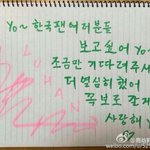 Yo~ 한국팬 여러분들
보고싶어 Yo~
조금만 기다려주세
더 열심히 했어
꼭보로 갈게
사랑해 Y
LUHAN
weibo.com/u/52